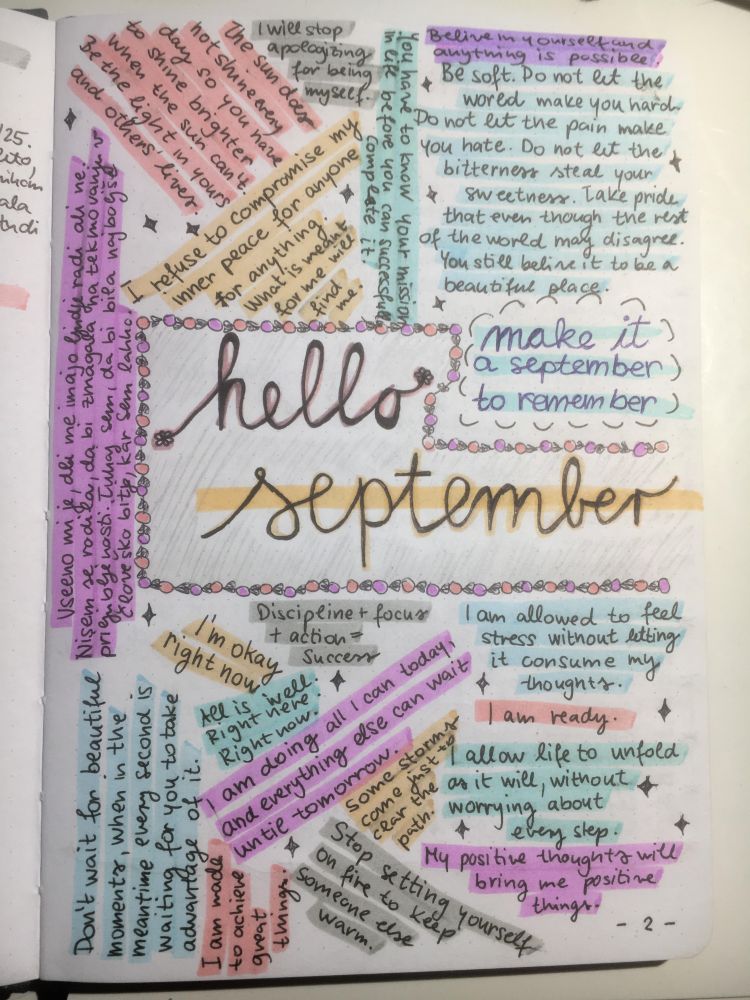 125.
ala
tudi
The sun does
not shine every
day so you have
to shine brighter
when the sun can't.
Be the light in yours
and others' lives
I will stop
apologizing
for being
myself.
You have to know your mission
in life before you can successfull
complete it.
Belive in yourself and
anything is possible.
Be soft. Do not let the
world make you hard.
Do not let the pain make
you hate. Do not let the
bitterness steal your
sweetness. Take pride
that even though the rest
of the world may disagree.
You still belive it to be a
beautiful place.
I refuse to compromise my
inner peace for anyone
for anything.
What is meant
for me will
find
me.
Vseeno mi je, ali me imajo ljudje radi ali ne.
Nisem se rodila, da bi zmagala na tekmovanju v
priljubljenosti. Tukaj sem, da bi bila najboljše
človeško bitje, kar sem lahko.
make it
a september
to remember
hello
september
I'm okay
right now
Discipline + focus
+ action =
Success
I am allowed to feel
stress without letting
it consume my
thoughts.
All is well.
Right here
Right now.
I am doing all I can today,
and everything else can wait
untie tomorrow.
I am ready.
Don't wait for beautiful
moments, when in the
meantime every second is
waiting for you to take
advantage of it.
Some storms
come just to
clear the
path.
I allow life to unfold
as it will, without
worrying about
every step.
I am made
to achieve
great
things.
Stop setting yourself
on fire to keep
someone else
warm.
My positive thoughts will
bring me positive
things.
- 2 -